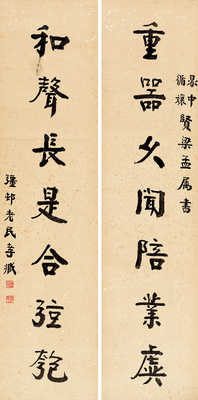 中
循穰
賢梁孟屬書
重器久聞陪業虡
和聲長是合弦匏
彊邨老民孝臧